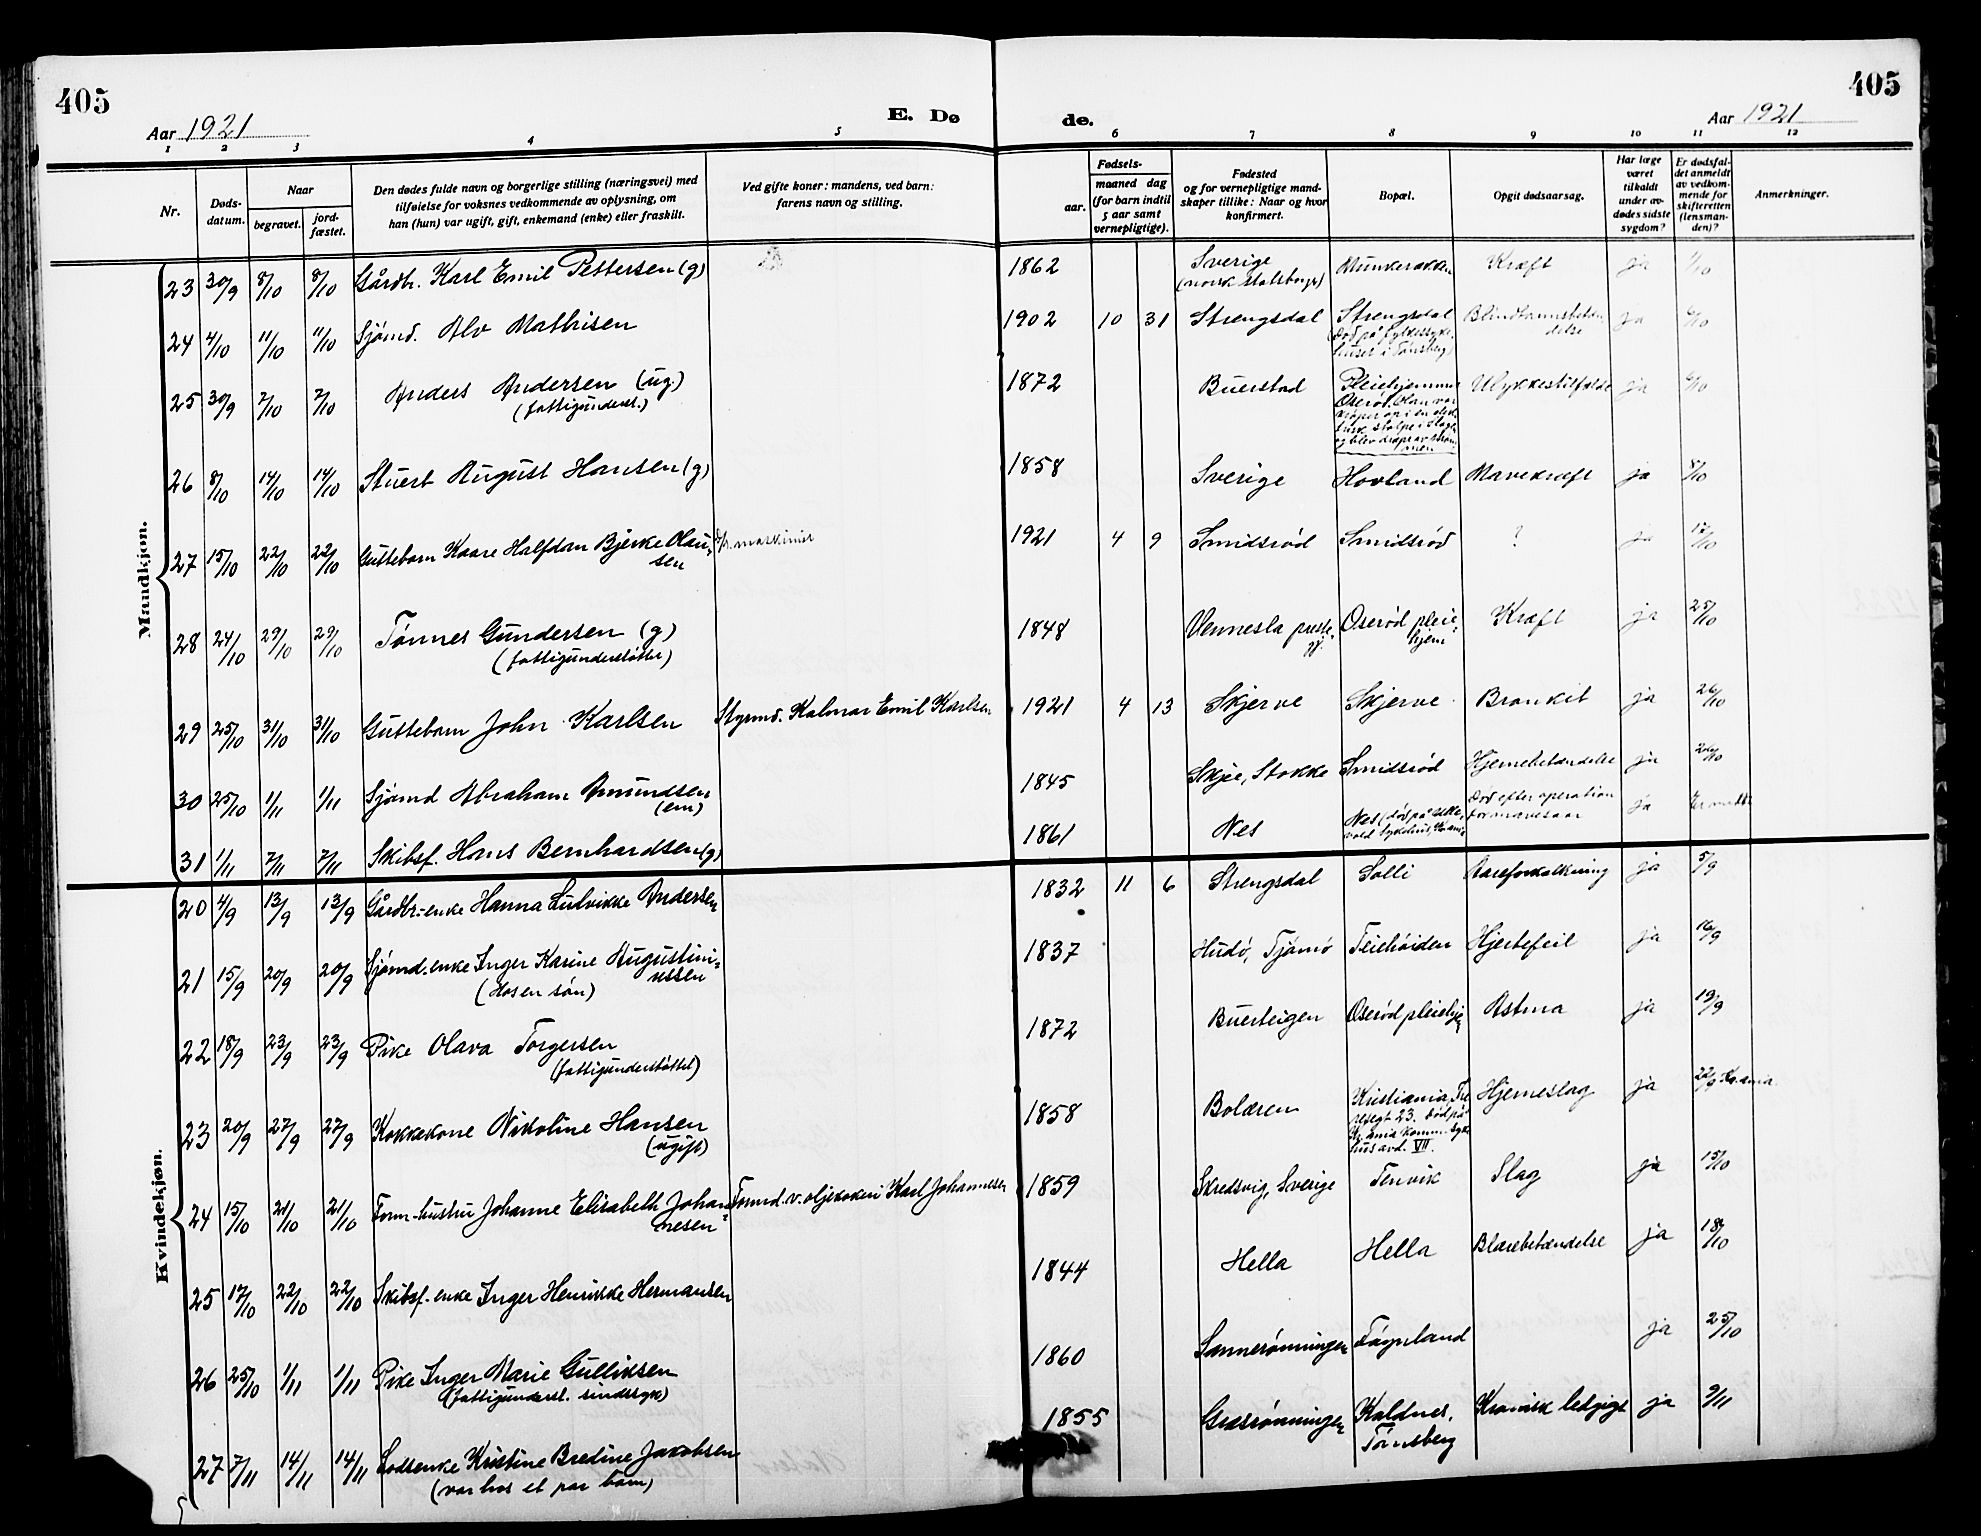 405
405
Aar 1921
E. Dø
de.
Aar 1921
1 2 3 4 5 6 7 8 9 10 11 12
Nr.
Døds-
datum.
Naar
begravet.
jord-
fæstet.
Den dødes fulde navn og borgerlige stilling (næringsvei) med
tilføielse for voksnes vedkommende av oplysning, om
han (hun) var ugift, gift, enkemand (enke) eller fraskilt.
Ved gifte koner: mandens, ved barn:
farens navn og stilling.
Fødsels-
aar.
maaned dag
(for barn indtil
5 aar samt
vernepligtige).
Fødested
og for vernepligtige mand-
skaper tillike: Naar og hvor
konfirmert.
Bopæl.
Opgit dødsaarsag.
Har læge
været
tilkaldt
under av-
dødes sidste
sygdom?
Er dødsfal-
det anmeldt
av vedkom-
mende for
skifteretten
(lensman-
den)?
Anmerkninger.
Mandkjøn.
23 30/9 8/10 8/10 Gårdbr. Karl Emil Pettersen (g) 1862 Sverige Munkerekken Kræft ja 1/10
(norsk statsborger)
24 4/10 11/10 11/10 Sjømd. Alv Mathisen 1902 10 31 Strengsdal Strengsdal Blindtarmsbeten ja 6/10
(død på fylkessyke- delse
huset i Tønsberg)
25 30/9 7/10 7/10 Anders Andersen (ug.) 1872 Buerstad Pleiehjemmet Ulykkestilfælde ja 6/10
(fattigunderst.) Oserød. Han var
krøpet op i en elek
trisk stolpe i Slagen
og blev dræpt av strøm
men
26 8/10 14/10 14/10 Stuert August Hansen (g) 1858 Sverige Hovland Mavekræft ja 8/10
27 15/10 22/10 22/10 Guttebarn Kaare Halfdan Bjerke Olau- maskinist 1921 4 9 Smidsrød Smidsrød ? ja 17/10
sen
28 24/10 29/10 29/10 Tønnes Gundersen (g) 1848 Vennesla preste Oserød pleie- Kræft ja 25/10
(fattigunderstøttet) gj. hjem
29 25/10 31/10 31/10 Guttebarn John Karlsen Styrmd. Kalmar Emil Karlsen 1921 4 13 Skjerve Skjerve Bronkit ja 26/10
30 25/10 1/11 1/11 Sjømd Abraham Amundsen 1845 Skjee, Stokke Smidsrød Hjernebetændelse ja 26/10
(em)
31 1/11 7/11 7/11 Skibsf. Hans Bernhardsen (g) 1861 Nes Nes (død på Ulle- Død efter operation ja
vold sykehus, Kr.ania for mavesaar
Kvindekjøn.
20 4/9 13/9 13/9 Gårdbr.-enke Hanna Lulvikke Andersen 1832 11 6 Strengsdal Solli Aareforkalkning ja 5/9
21 15/9 20/9 20/9 Sjømd.enke Inger Karine Augustini- 1837 Hudø, Tjømø Teiehøiden Hjertefeil ja 16/9
ussen
(Hos en søn)
22 18/9 23/9 23/9 Pike Olava Torgersen 1872 Buerteigen Oserød pleiehj. Astma ja 19/9
(fattigunderstøttet)
23 20/9 27/9 27/9 Kokkekone Nikoline Hansen 1858 Bolæren Kristiania, Hjerneslag ja 22/9 Kr.ania
(ugift) 23. Død på
Kr.ania komm. syke
hus avd. VII.
24 15/10 21/10 21/10 Form-hustru Johanne Elisabeth Johan- Formd. v. oljekokeri Karl Johannesen 1859 Skredsvig, Sverige Tenvik Slag ja 15/10
nesen
25 17/10 22/10 22/10 Skibsf.-enke Inger Henrikke Hermansen 1844 Hella Hella Blærebetændelse ja 18/10
26 25/10 1/11 1/11 Pike Inger Marie Gulliksen 1860 Sannerønningen Føynland ja 25/10
(fattigunderst. sindssyk)
27 7/11 14/11 14/11 Lodsenke Kristine Bredine Jakobsen 1855 Græsrønningen Kaldnes, Kronisk ledgigt ja 9/11
(var hos et par barn) Tønsberg